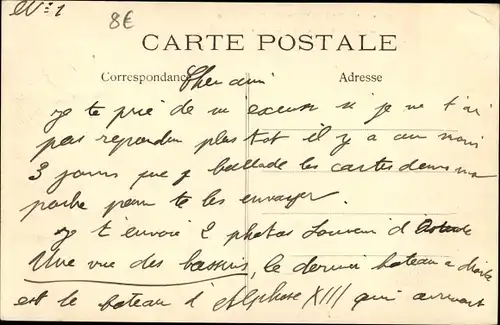 N° 1
8€
CARTE POSTALE
Correspondance
Adresse
Cher ami
je te prie de m'excuser si je ne t'ai
pas repondu plus tot il y a au moins
3 jours que je ballade les cartes dans ma
poche pour te les envoyer.
je t'envoie 2 photos souvenir d'Ostende
Une vue des bassins, le dernier bateau a droite
est le bateau d'Alphonse XIII qui arrivait